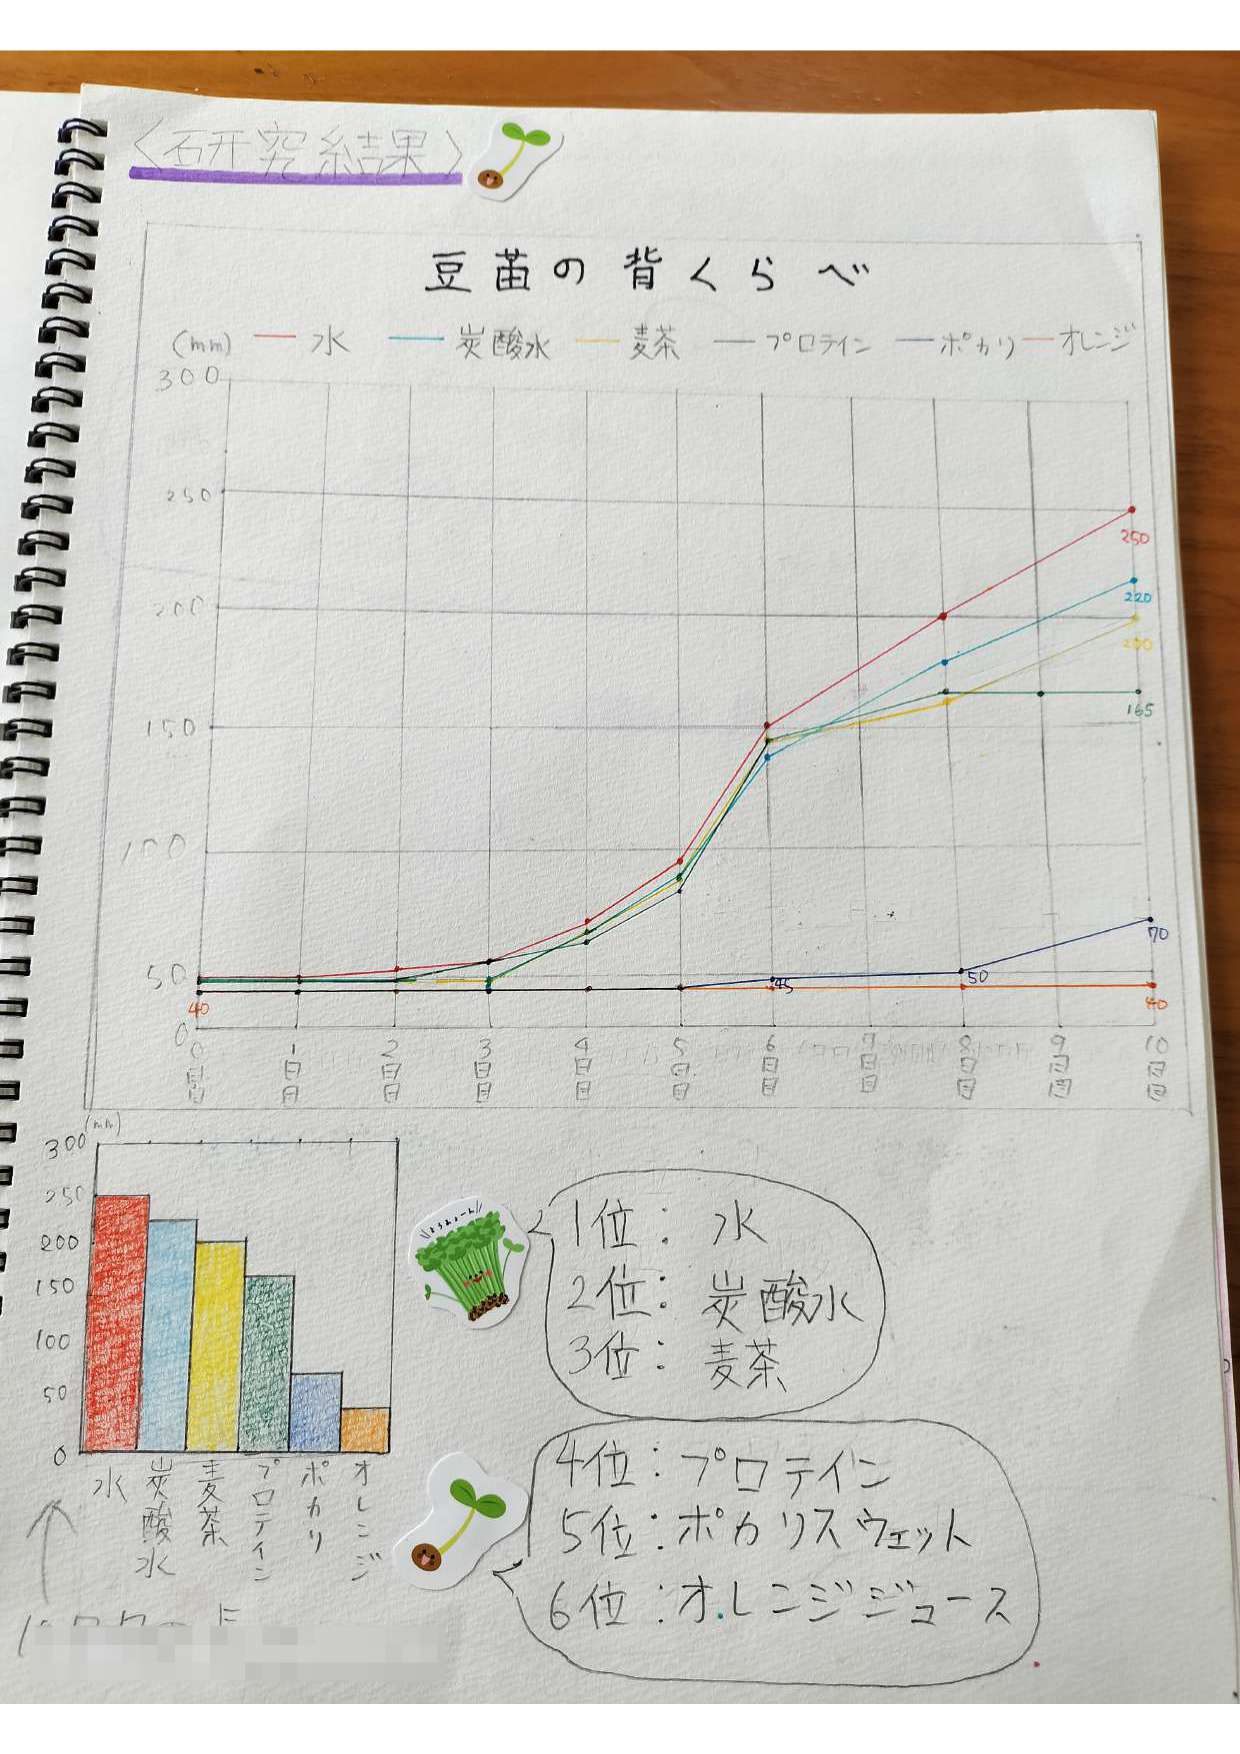 〈研究結果〉
豆苗の背くらべ
(mm) 水 炭酸水 麦茶 プロテイン ポカリ オレンジ
300
250
250
220
200
200
165
150
100
70
50
45
50
40
40
0
0日目 1日目 2日目 3日目 4日目 5日目 6日目 7日目 8日目 9日目 10日目
(mm)
300
250
200
150
100
50
0
水 炭酸水 麦茶 プロテイン ポカリ オレンジ
1位：水
2位：炭酸水
3位：麦茶
4位：プロテイン
5位：ポカリスウェット
6位：オレンジジュース